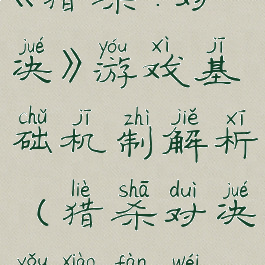 《猎杀：对
jué yóu xì jī
决》游戏基
chǔ jī zhì jiě xī
础机制解析
liè shā duì jué
（猎杀对决
yǒu xiàn fàn wéi